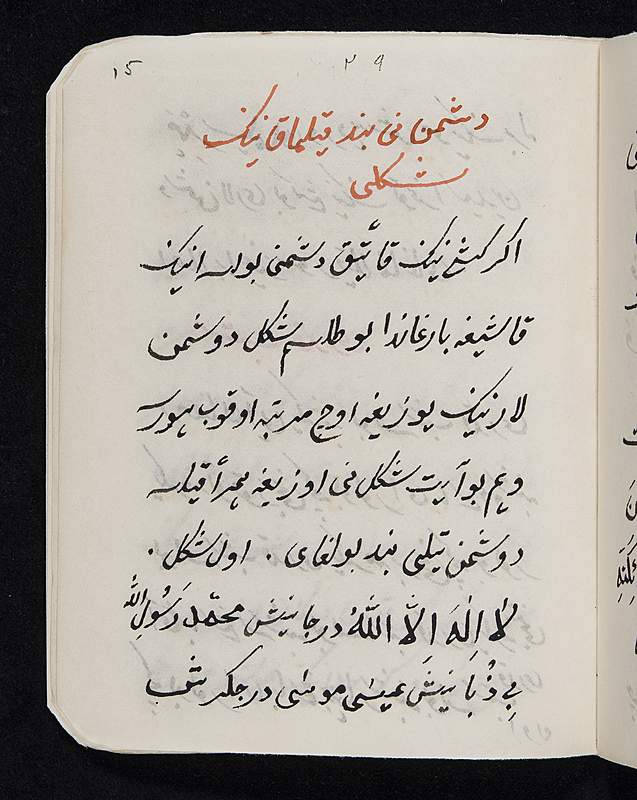 ۱۵ ۲۹
دشمن نی بند قیلماقانیک
شکلی
اکر کشی نیک قاتیق دشمنی بولسه انیک
قاشیغه بارغاندا بو طلسم شکل دوشمن
لار نیک یوزیغه اوچ مرتبه اوقوب
وهم بو آیت شکل نی اوزیغه همرأ قیلسه
دوشمن تیلی بند بولغای . اول شکل .
لا اِلٰهَ الاَّ اللّٰهُ در جانیش محمّد رَسُولُ اللّٰه
عیسی موسی در جکر